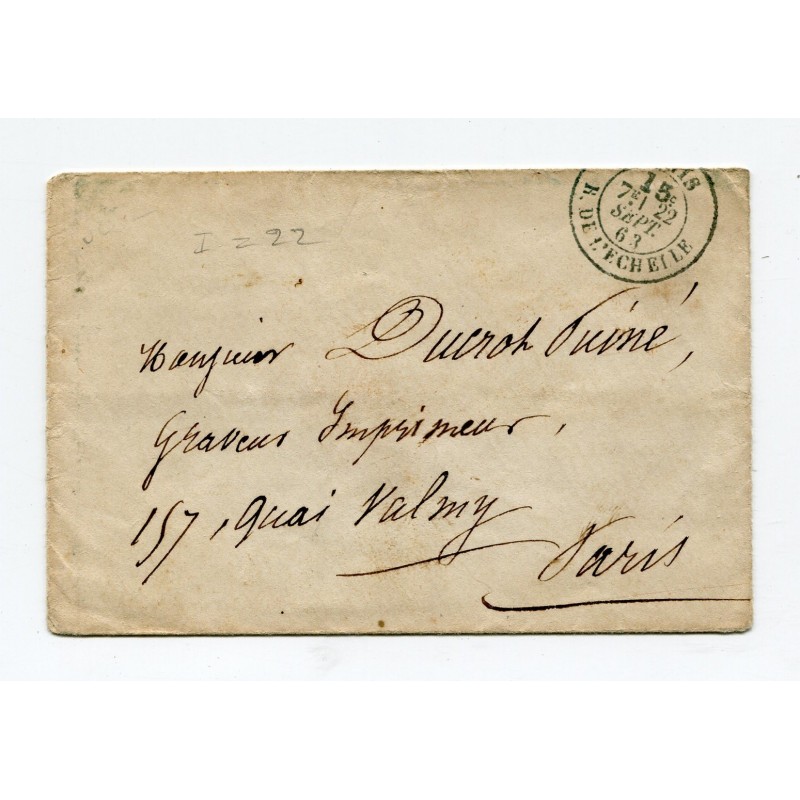 PARIS
15c
7E/1 22
SEPT.
63
R. DE L'ECHELLE
I = 22
Monsieur Ducrot Puiné,
Graveur Imprimeur,
157, Quai Valmy
Paris